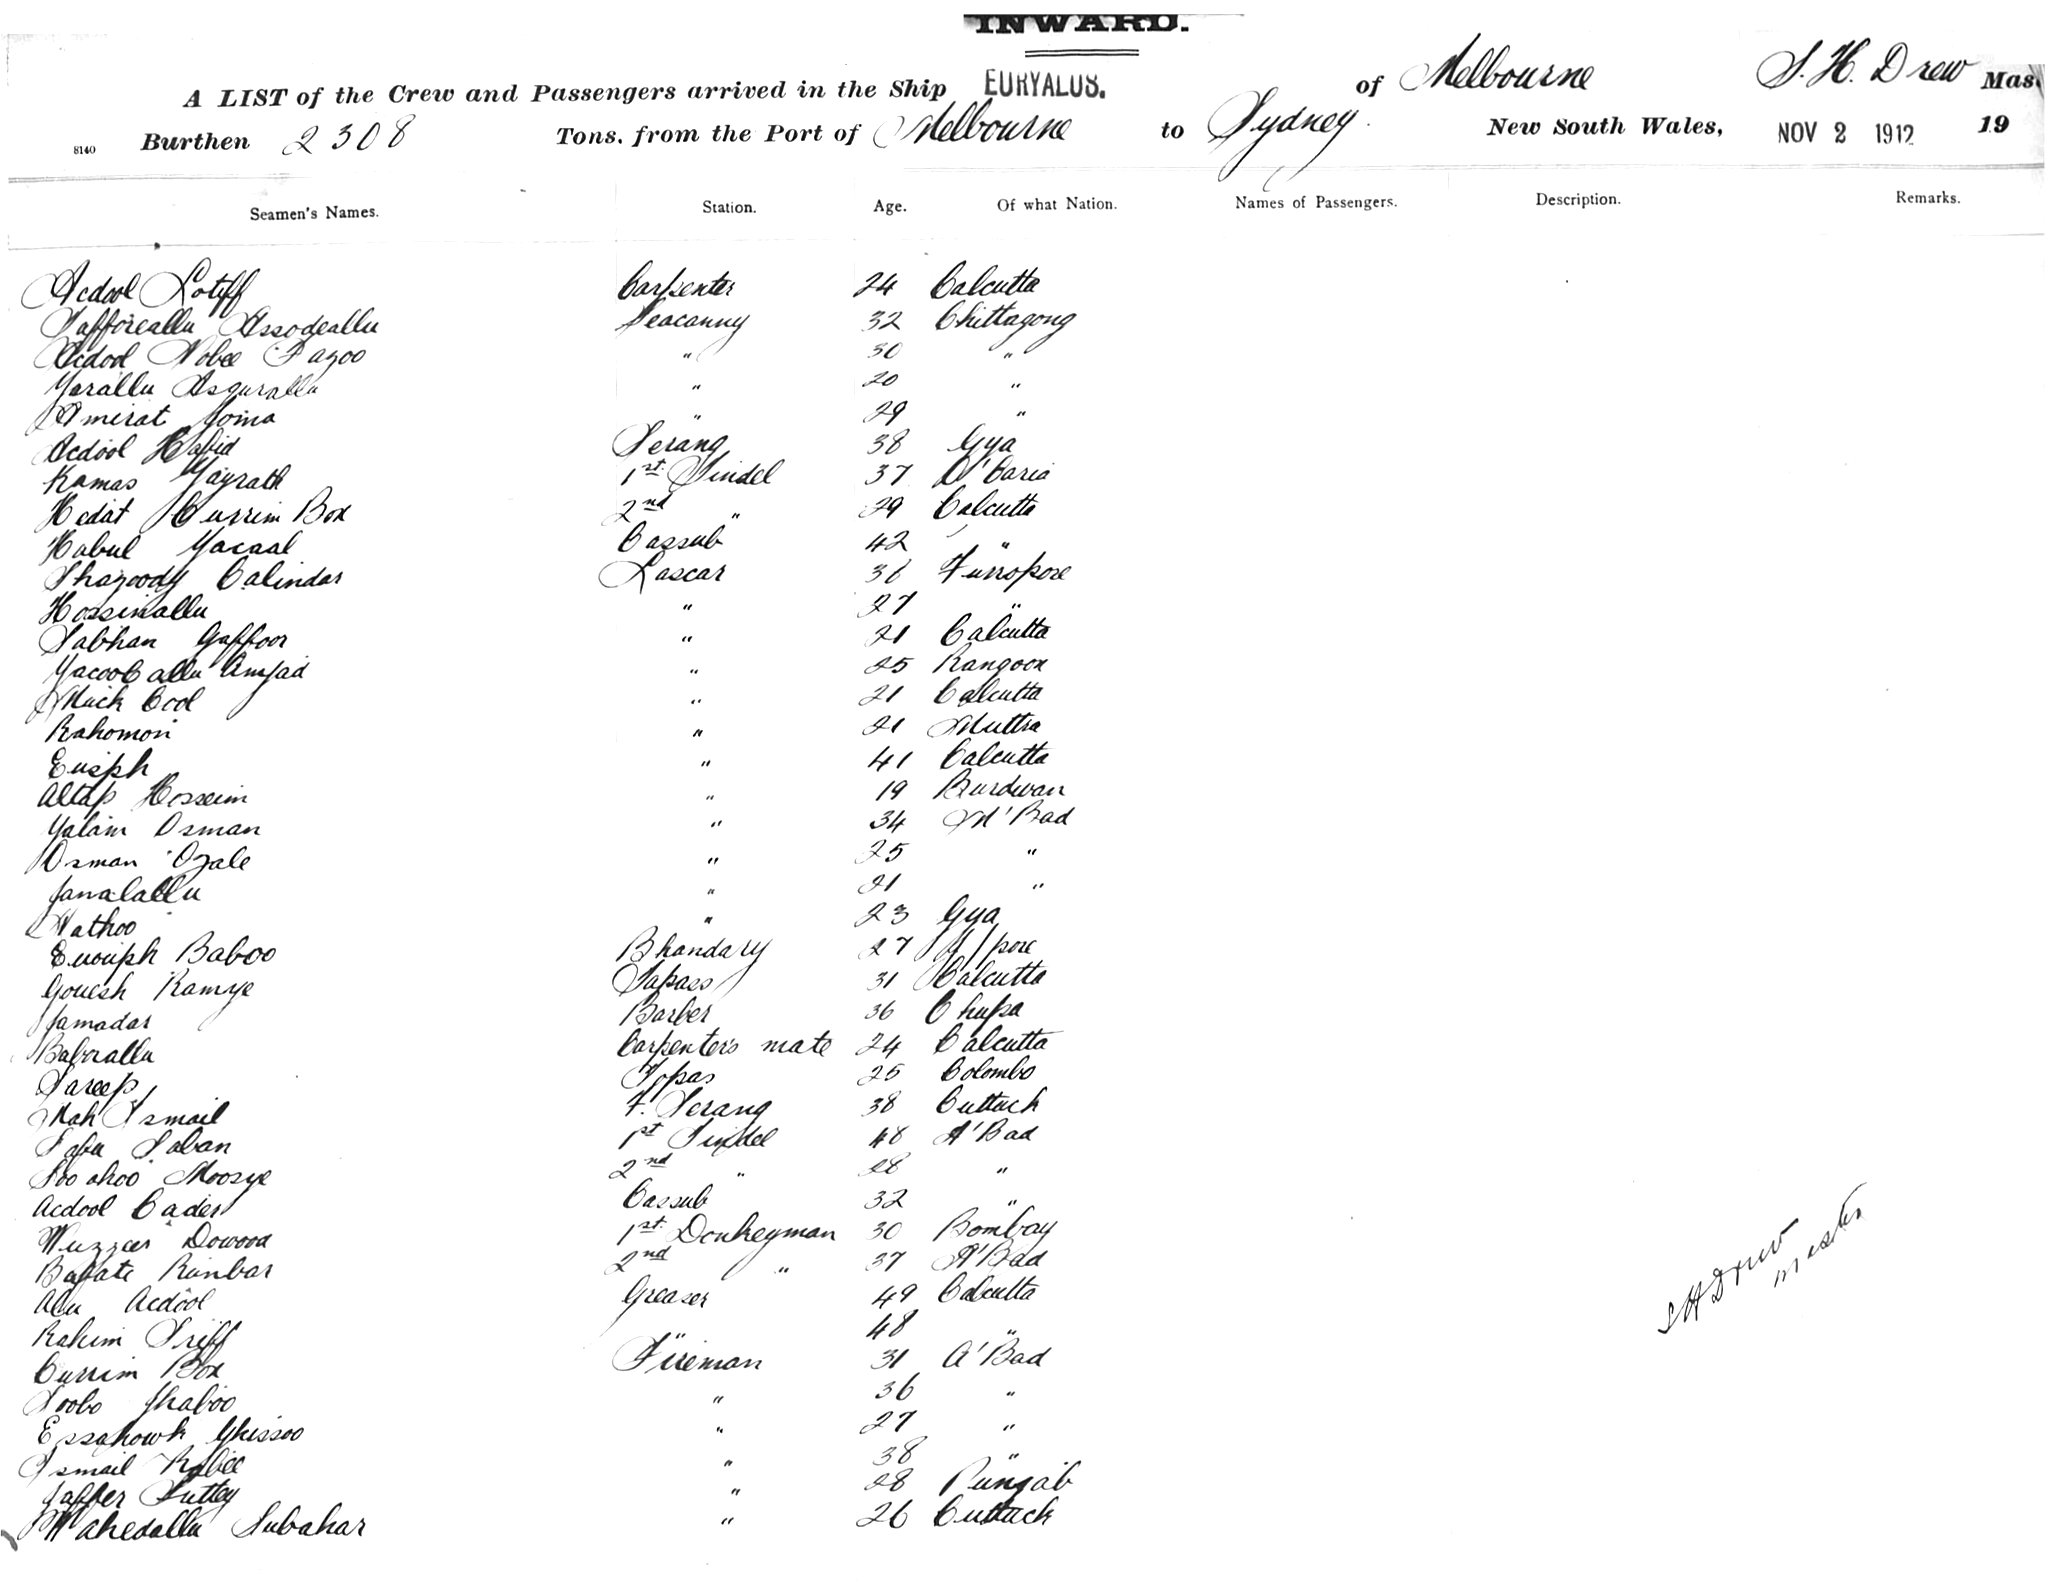 INWARD.
A LIST of the Crew and Passengers arrived in the Ship EURYALUS. of Melbourne S. H. Drew Mas.
8140 Burthen 2308 Tons, from the Port of Melbourne to Sydney. New South Wales, NOV 2 1912 19
Seamen's Names. Station. Age. Of what Nation. Names of Passengers. Description. Remarks.
Acdool Lotiff Carpenter 24 Calcutta
Safforeallu Assodeallu Seacunny 32 Chittagong
Acdool Nobee Fazoo " 30 "
Yarallu Asgurallu " 20 "
Amirat Joma " 29 "
Acdool Hafid Serang 38 Gya
Kamas Yayrath 1st Tindel 37
Hedat Currim Box 2nd " 29 Calcutta
Habul Yacaal Cassub 42 "
Shazoody Calindar Lascar 36 Furropore
Hossinallu " 27 "
Sabhan Gaffoor " 21 Calcutta
Yacooballu Amjad " 25 Rangoon
Muck Cool " 21 Calcutta
Rahomon " 21 Muttra
Eusph " 41 Calcutta
Altap Hosseim " 19 Burdwan
Yalam Osman " 34 M'Bad
Osman Ozale " 25 "
Janalallu " 21 "
Nathoo " 23 Gya
Baboo Bhandary 27
Gouesh Ramye Tapass 31 Calcutta
Jamadar Barber 36 Chupa
Baberallu Carpenter's mate 24 Calcutta
Sareep Topas 25 Colombo
Mah Ismail F. Serang 38 Cuttack
Saban 1st Tindel 48 A'Bad
Moosye 2nd " 28 "
Acdool Cader Cassub 32 "
Wuzzeer Dowood 1st Donkeyman 30 Bombay
Bafate Rambar 2nd " 37 A'Bad
Alu Acdool Greaser 49 Calcutta
Rahim Sriff " 48 "
Currim Box Fireman 31 A'Bad
Soobo Jhaboo " 36 "
Essahowk Ghissoo " 27 "
Ismail Rabee " 38 "
Jaffer Suttey " 28 Punjab
Wahedallu Subahar " 26 Cuttack
S H Drew
Master